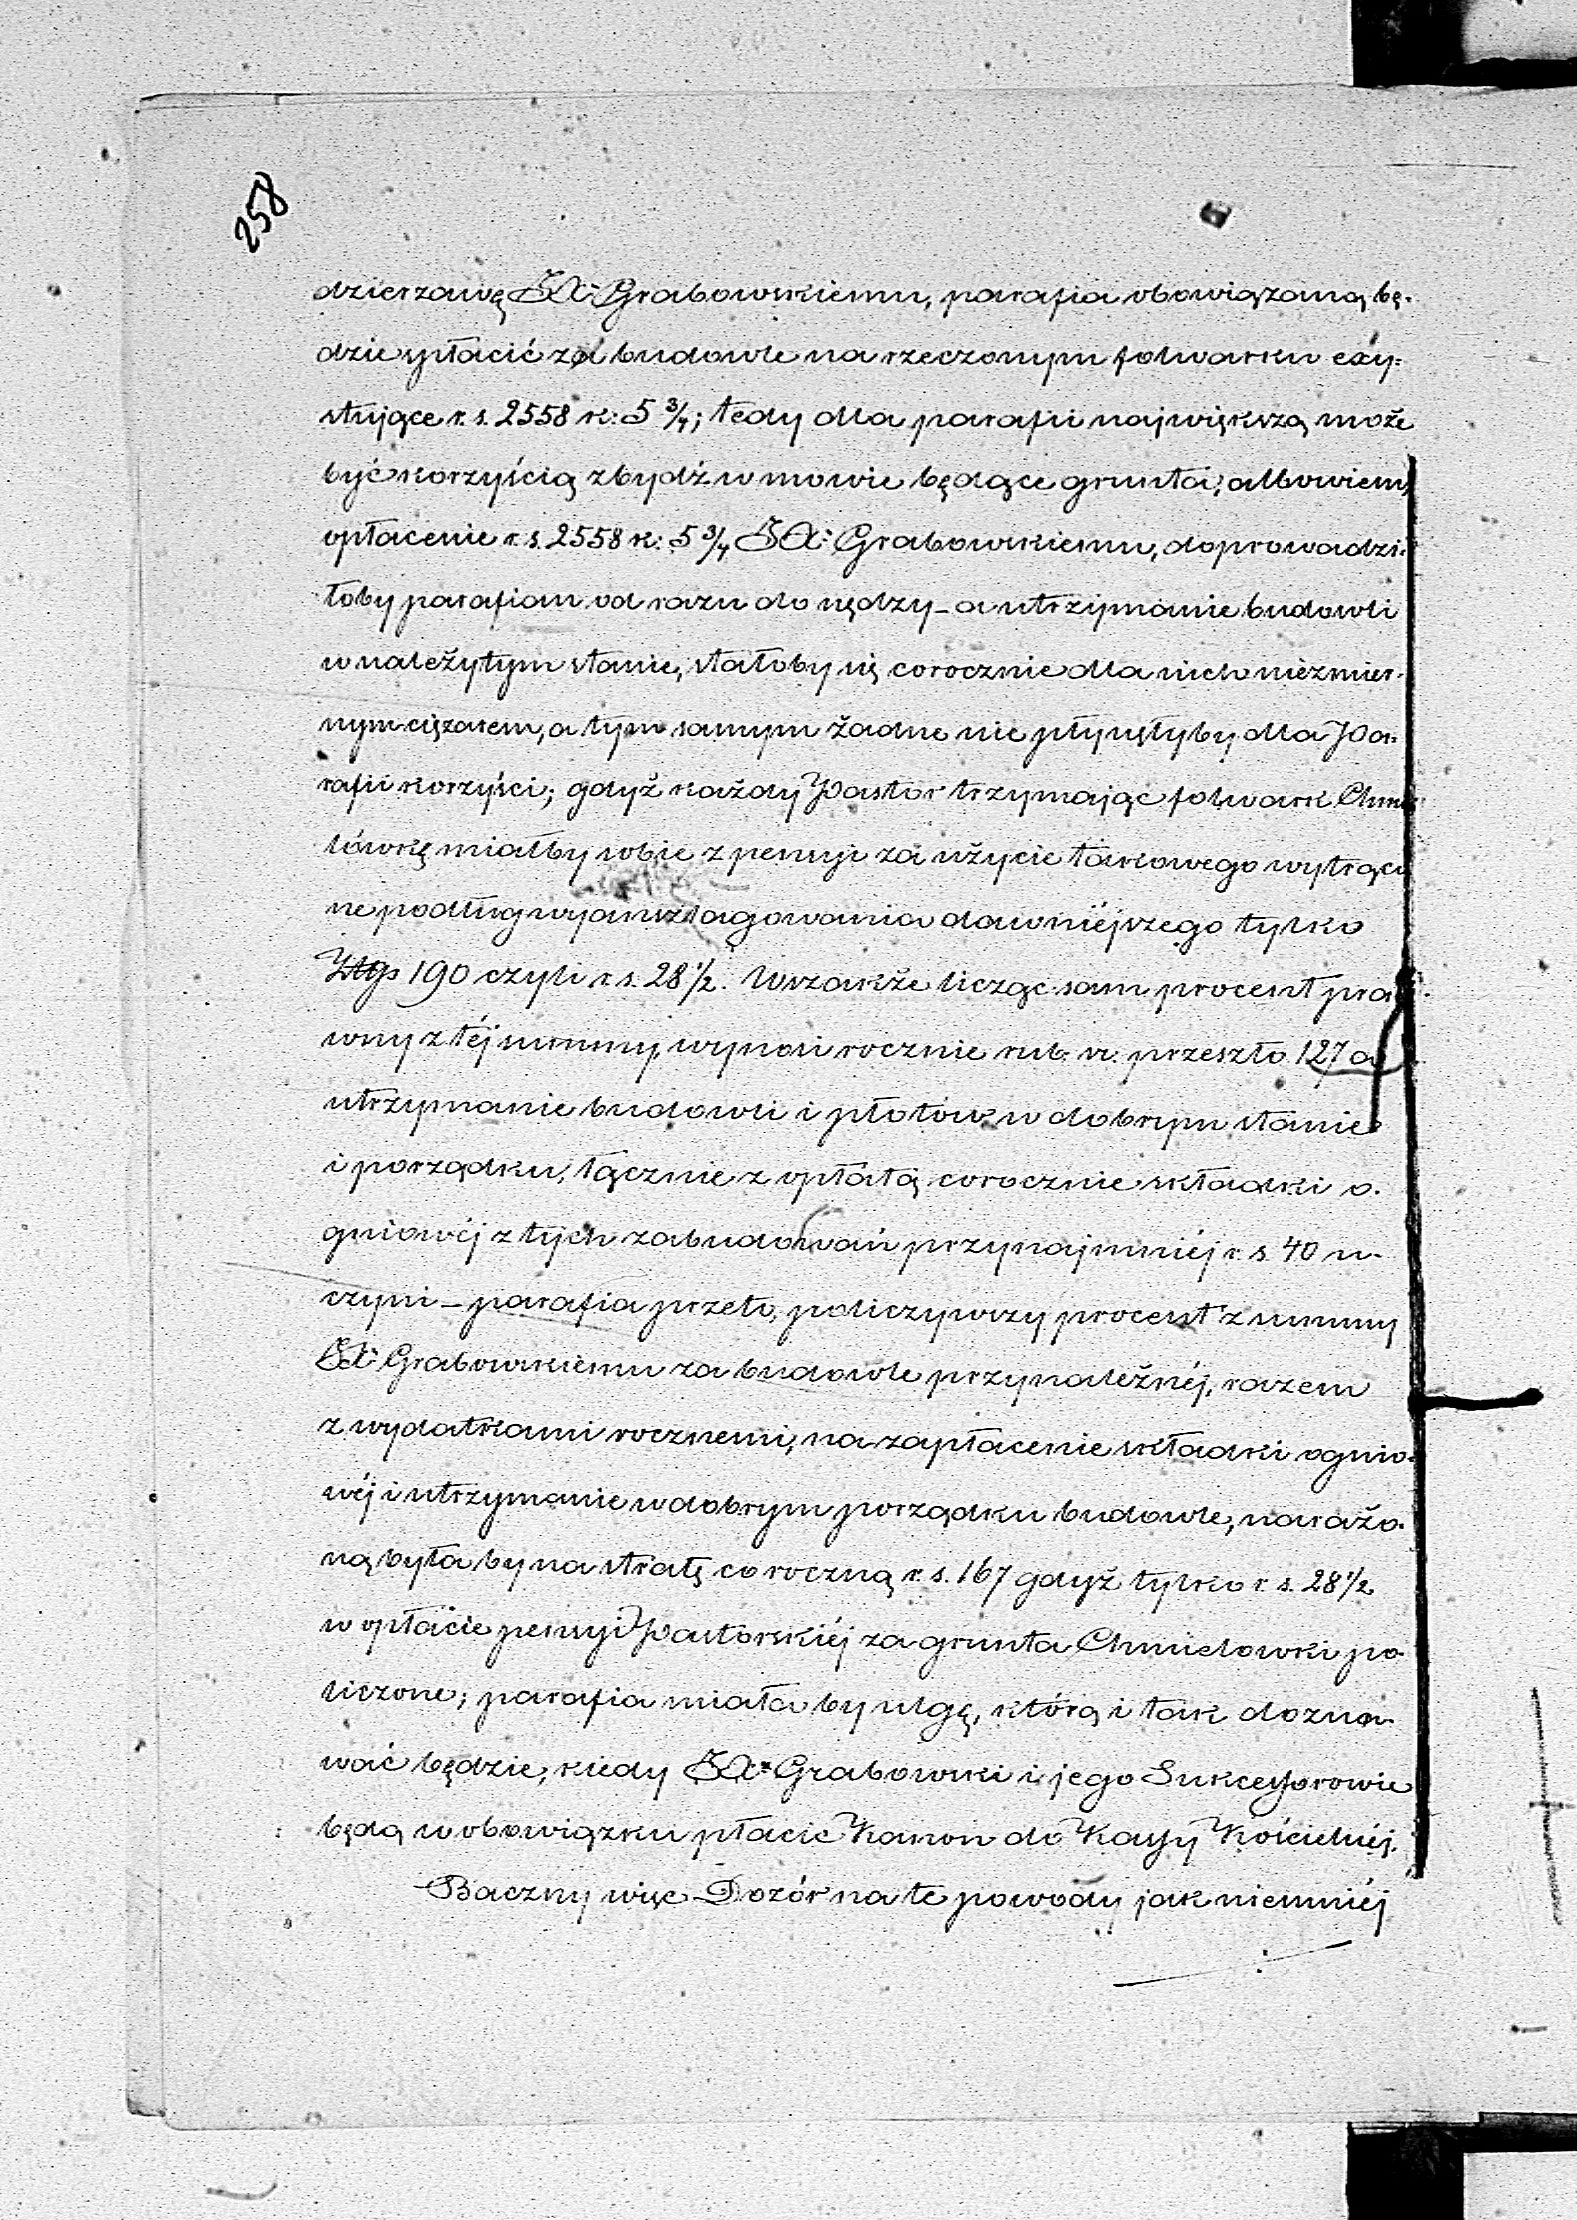 258
dzierzawę JX: Grabowskiemu, parafia obowiązaną bę-
dzie płacić za budowle na rzeczonym folwarku exy-
stujące r. s. 2558 k: 5 3/4; tedy dla parafii największą może
być korzyścią zbydź w mowie będące grunta; albowiem
opłacenie r. s. 2558 k: 5 3/4 JX: Grabowskiemu, doprowadzi-
łoby parafian od razu do nędzy – a utrzymanie budowli
w należytym stanie, stałoby się corocznie dla nich niezmier-
nym ciężarem, a tym samym żadne nie płynęłyby dla Pa-
rafii korzyści; gdyż każdy Pastor trzymając folwark Chmie
lówkę miałby sobie z pensyi za użycie takowego wytrąco
ne podług wyanszlagowania dawniéjszego tylko
190 czyli r. s. 28 1/2. Wszakże licząc sam procent pra-
wny z téj summy, wynosi rocznie rub. sr. przeszło 127 a
utrzymanie budowli i płotów w dobrym stanie
i porządku, łącznie z opłatą corocznie składki o-
gniowéj z tych zabudowań przynajmniéj r. s. 40 u-
czyni – parafia przeto, policzywszy procent z summy
JX: Grabowskiemu za budowle przynależnéj, razem
z wydatkami rocznemi, na zapłacenie składki ognio-
wéj i utrzymanie w dobrym porządku budowle, narażo-
ną byłaby na stratę coroczną r. s. 167 gdyż tylko r. s. 28 1/2
w opłacie pensyi Pastorskiéj za grunta Chmielowki po-
liczone; parafia miała by ulgę, którą i tak dozna-
wać będzie, kiedy JX: Grabowski i jego Sukcessorowie
będą w obowiązku płacić Kanon do Kassy Kościelnéj.
Baczny więc Dozór na te powody jak niemniéj